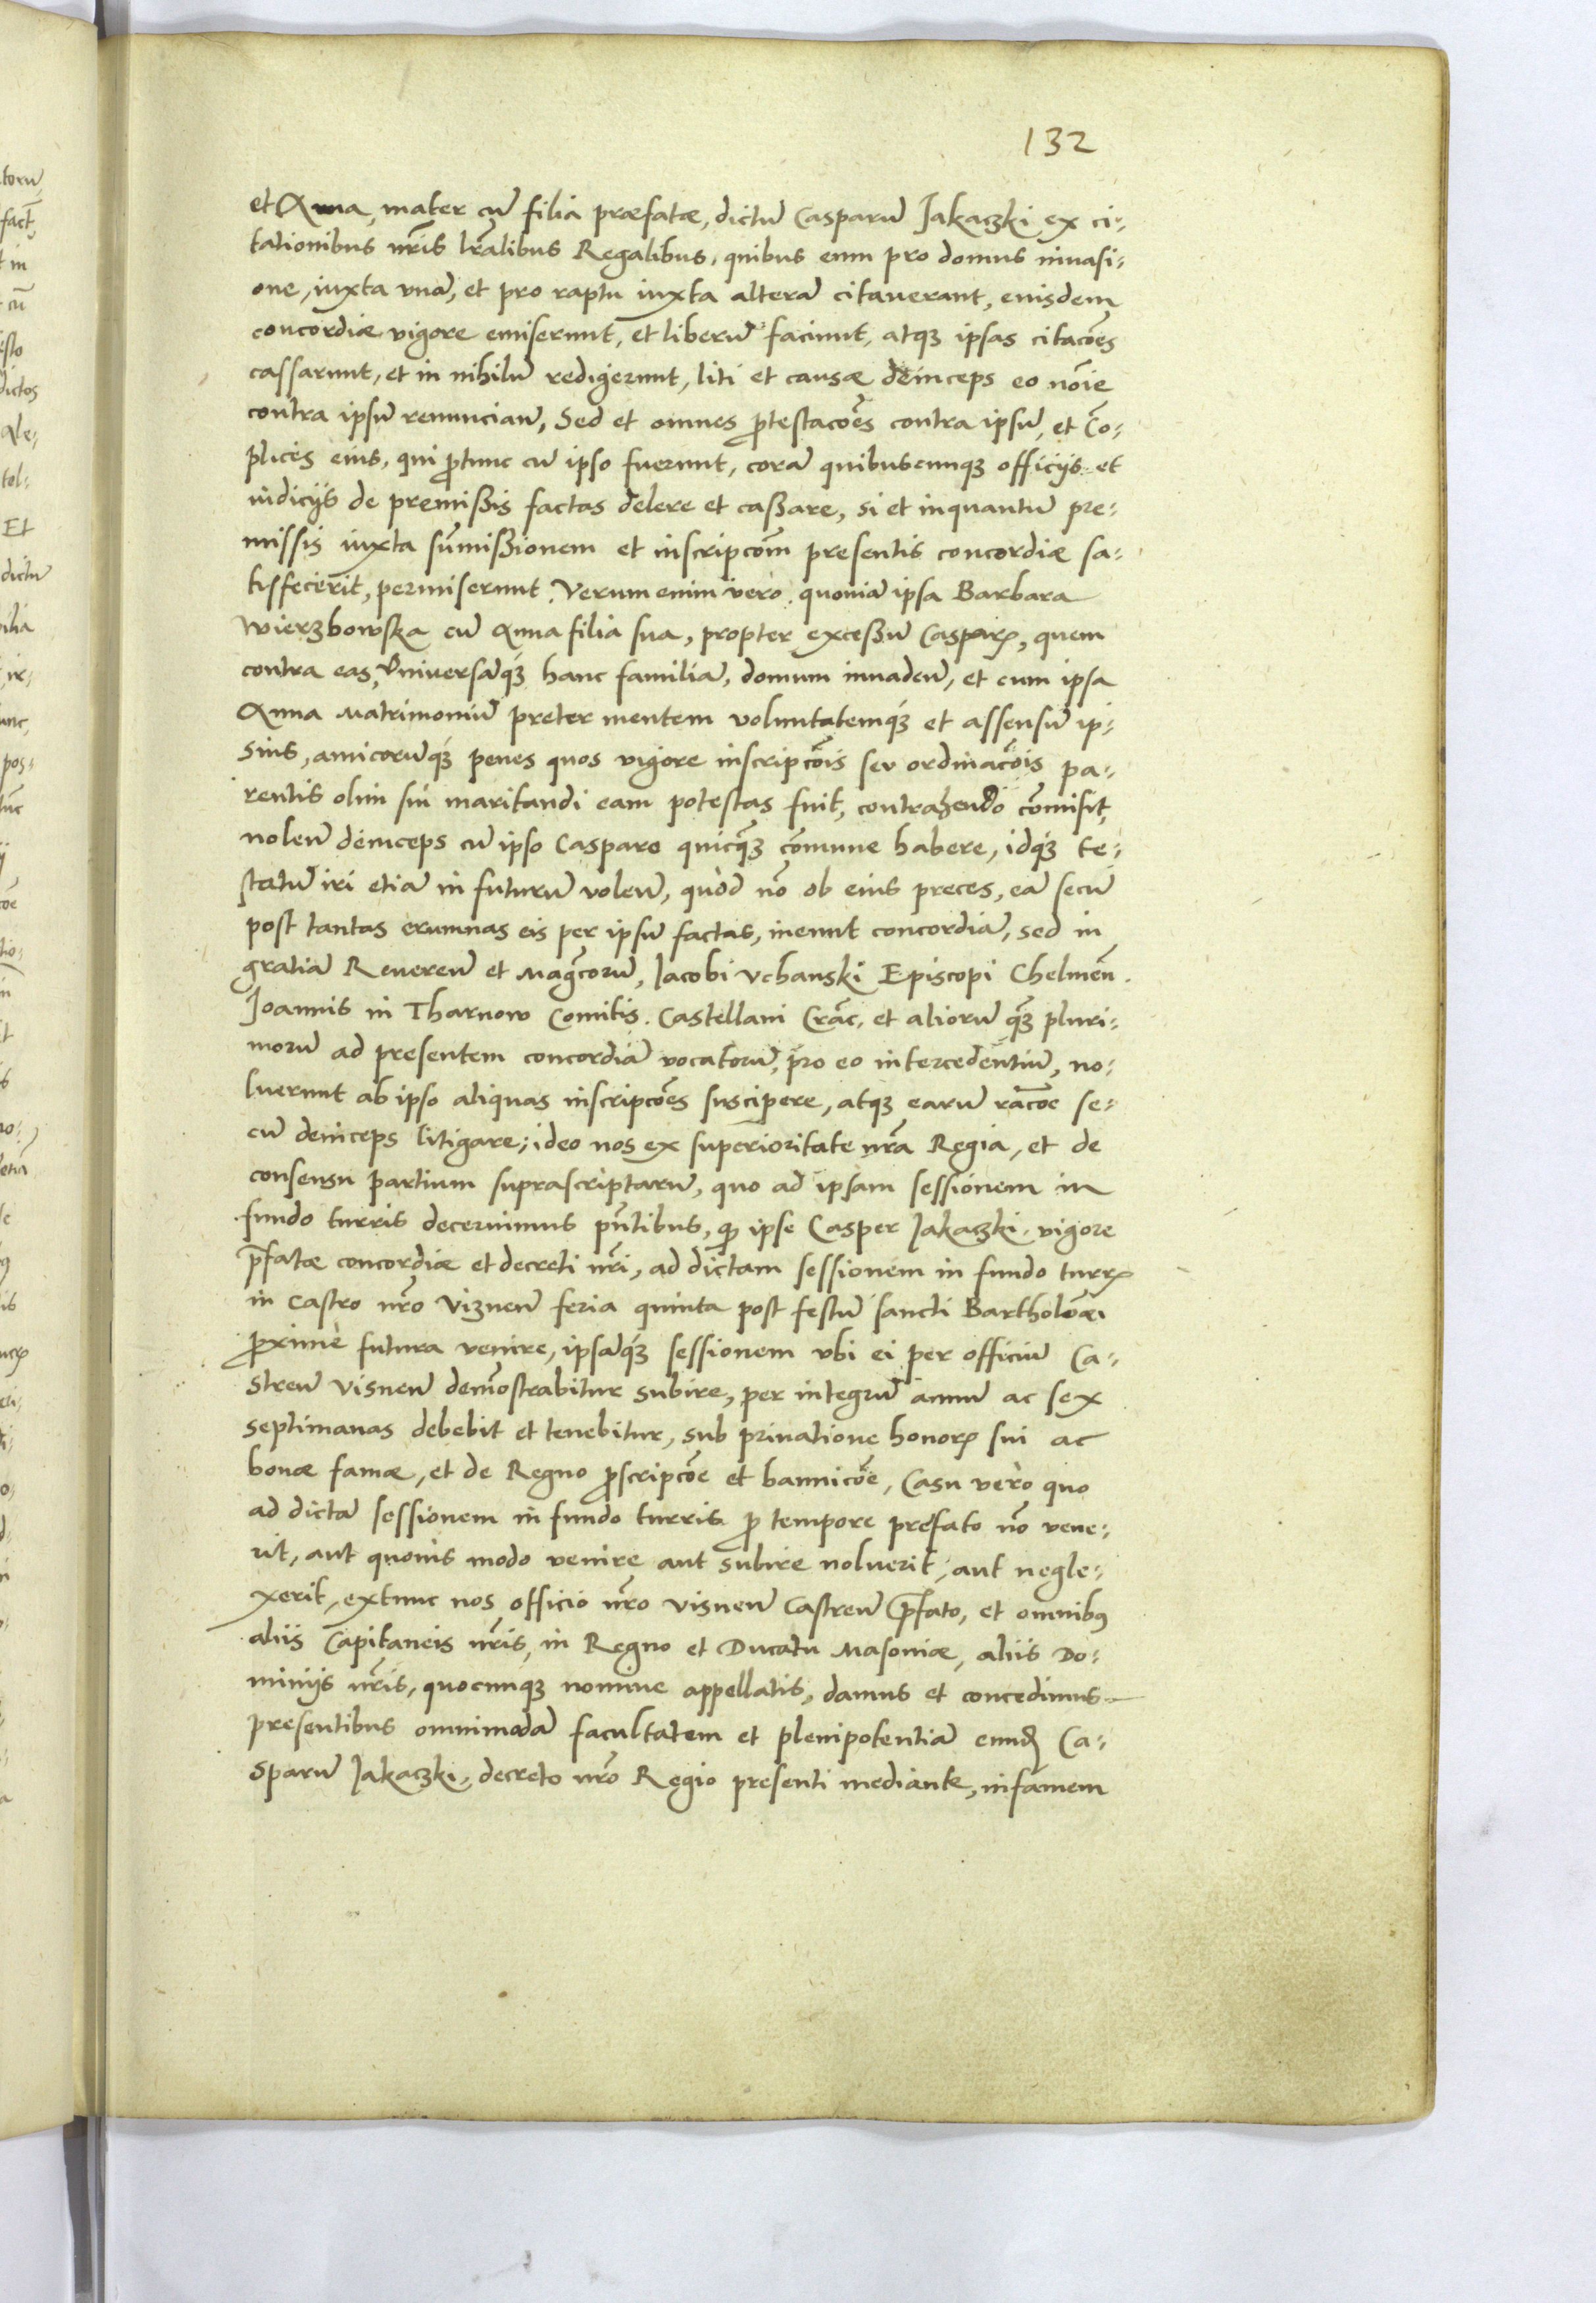 132
et Anna, mater cū filia præfatæ, dictū Casparū Jakaczki ex ci-
tationibus nr̄is lr̄alibus Regalibus, quibus eum pro domus inuasi-
one, iuxta vnā, et pro raptu iuxta alterā citauerant, euisdem
concordiæ vigore emiserunt, et liberū faciunt, atqꝫ ipsas citacoēs
cassarunt, et in nihilū redigerunt, liti et causæ deinceps eo noīe
contra ipsū renunciaū, Sed et omnes ꝓtestacoēs contra ipsū, et Cō-
plices eius, qui ꝓtunc cū ipso fuerunt, corā quibuscunqꝫ officijs et
iudicijs de premißis factas delere et caßare, si et inquantū pre-
missis iuxta sūmißionem et inscripcoīm presentis concordiæ sa-
tisfecerit, permiserunt. Verum enim vero quoniā ipsa Barbara
Wierzbowska cū Anna filia sua, propter exceßū Casparꝭ, quem
contra eas, Vniversāqꝫ hanc familiā, domum inuadeñ, et cum ipsa
Anna Matrimoniū preter mentem voluntatemqꝫ et assensū ip-
sius, amicorūqꝫ penes quos vigore inscripcoīs seu ordinacoīs pa-
rentis olim sui maritandi eam potestas fuit, contrahendo cōmisit,
noleñ deinceps cū ipso Casparo quicqꝫ cōmune habere, idqꝫ te-
statū iri etiā in futurū voleñ, quòd nō ob eius preces, eā secū
post tantas erumnas eis per ipsū factas, ineunt concordiā, sed in
gratiā Reuereñ et Magcorū, Jacobi Vchanski Episcopi Chelmeñ.
Joannis in Tharnow Comitis. Castellani Crāc, et aliorū qꝫ pluri-
morū ad presentem concordiā vocatorū, pro eo intercedentiū, no-
luerunt ab ipso aliquas inscripcoēs suscipere, atqꝫ earū racoē se-
cū deinceps litigare; ideo nos ex superioritate nr̄a Regia, et de
consensu partium suprascriptarū, quo ad ipsam sessionem in
fundo turris decernimus pn̄tibus, ꝙ ipse Casper Jakaczki vigore
p̄fatæ concordiæ et decreti nr̄i, ad dictam sessionem in fundo turrꝭ
in Castro nr̄o Vizneñ feria quinta post festū sancti Bartholomæi
ꝓxime futura venire, ipsāqꝫ sessionem vbi ei per officiū Ca-
streñ Visneñ demōstrabitur subire, per integrū annū ac sex
septimanas debebit et tenebitur, sub priuatione honorꝭ sui ac
bonæ famæ, et de Regno ꝓscripcoē et bannicoē, Casu vero quo
ad dictā sessionem in fundo turris ꝓ tempore prefato nō vene-
rit, aut quouis modo venire aut subire noluerit, aut negle-
xerit, extunc nos officio nr̄o visneñ Castreñ p̄fato, et omnibꝰ
aliis Capitaneis nr̄is, in Regno et Ducatu Masoniæ, aliis Do-
minijs nr̄is, quocunqꝫ nomine appellatis, damus et concedimus
presentibus omnimodā facultatem et plenipotentiā eundē Ca-
sparū Jakaczki, decreto nr̄o Regio presenti mediante, infamem